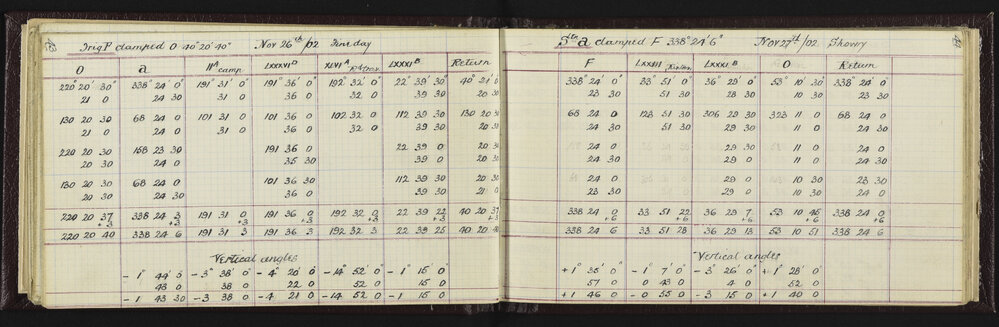 Trig P clamped O 40° 20' 40" Nov 26th/02 Fine day
O a IIA camp. LXXXVID XLVIA Rabms LXXXIB Return
220 20 30 338° 24' 0" 191° 31' 0" 191° 36' 0" 192° 32' 0" 22° 39' 30 40° 21' 0"
21 0 24 30 31 0 36 0 32 0 39 30 20 30
130 20 30 68 24 0 101 31 0 101 36 0 102 32 0 112 39 30 130 20 30
21 0 24 0 31 0 36 0 32 0 39 30 20 30
220 20 30 158 23 30 191 36 0 22 39 0 20 30
20 30 24 0 35 30 39 0 20 30
130 20 30 68 24 0 101 36 30 112 39 30 20 30
20 30 24 30 36 0 39 30 21 0
220 20 37 338 24 3 191 31 0 191 36 0 192 32 0 22 39 22 40 20 37
+3 +3 +3 +3 +3 +3
220 20 40 338 24 6 191 31 3 191 36 3 192 32 3 22 39 25 40 20 40
Vertical angles
- 1° 44' 0 - 3° 38' 0" - 4° 20' 0" - 14° 52' 0" - 1° 15' 0"
43 0 38 0 22 0 52 0 15 0
- 1 43 30 - 3 38 0 - 4 21 0 - 14 52 0 - 1 15 0
Stn a clamped F 338° 24' 6" Nov 27th/02 Showry
F LXXIII LXXXIB O Return
338° 24' 0" 33° 51' 0" 36° 29' 0" 53° 10' 30 338° 24' 0
23 30 51 30 28 30 10 30 23 30
68 24 0 123 51 30 306 29 30 323 11 0 68 24 0
24 30 51 30 29 30 11 0 24 30
24 0 29 30 11 0 24 0
24 30 29 0 11 0 24 30
24 0 29 0 10 30 23 30
23 30 29 0 10 30 24 0
338 24 0 33 51 22 36 29 7 53 10 45 338 24 0
+6 +6 +6 +6 +6
338 24 6 33 51 28 36 29 13 53 10 51 338 24 6
Vertical angles
+1° 35' 0" - 1° 7' 0" - 3° 26' 0" +1° 28' 0"
57 0 0 43 0 4 0 52 0
+1 46 0 - 0 55 0 - 3 15 0 +1 40 0